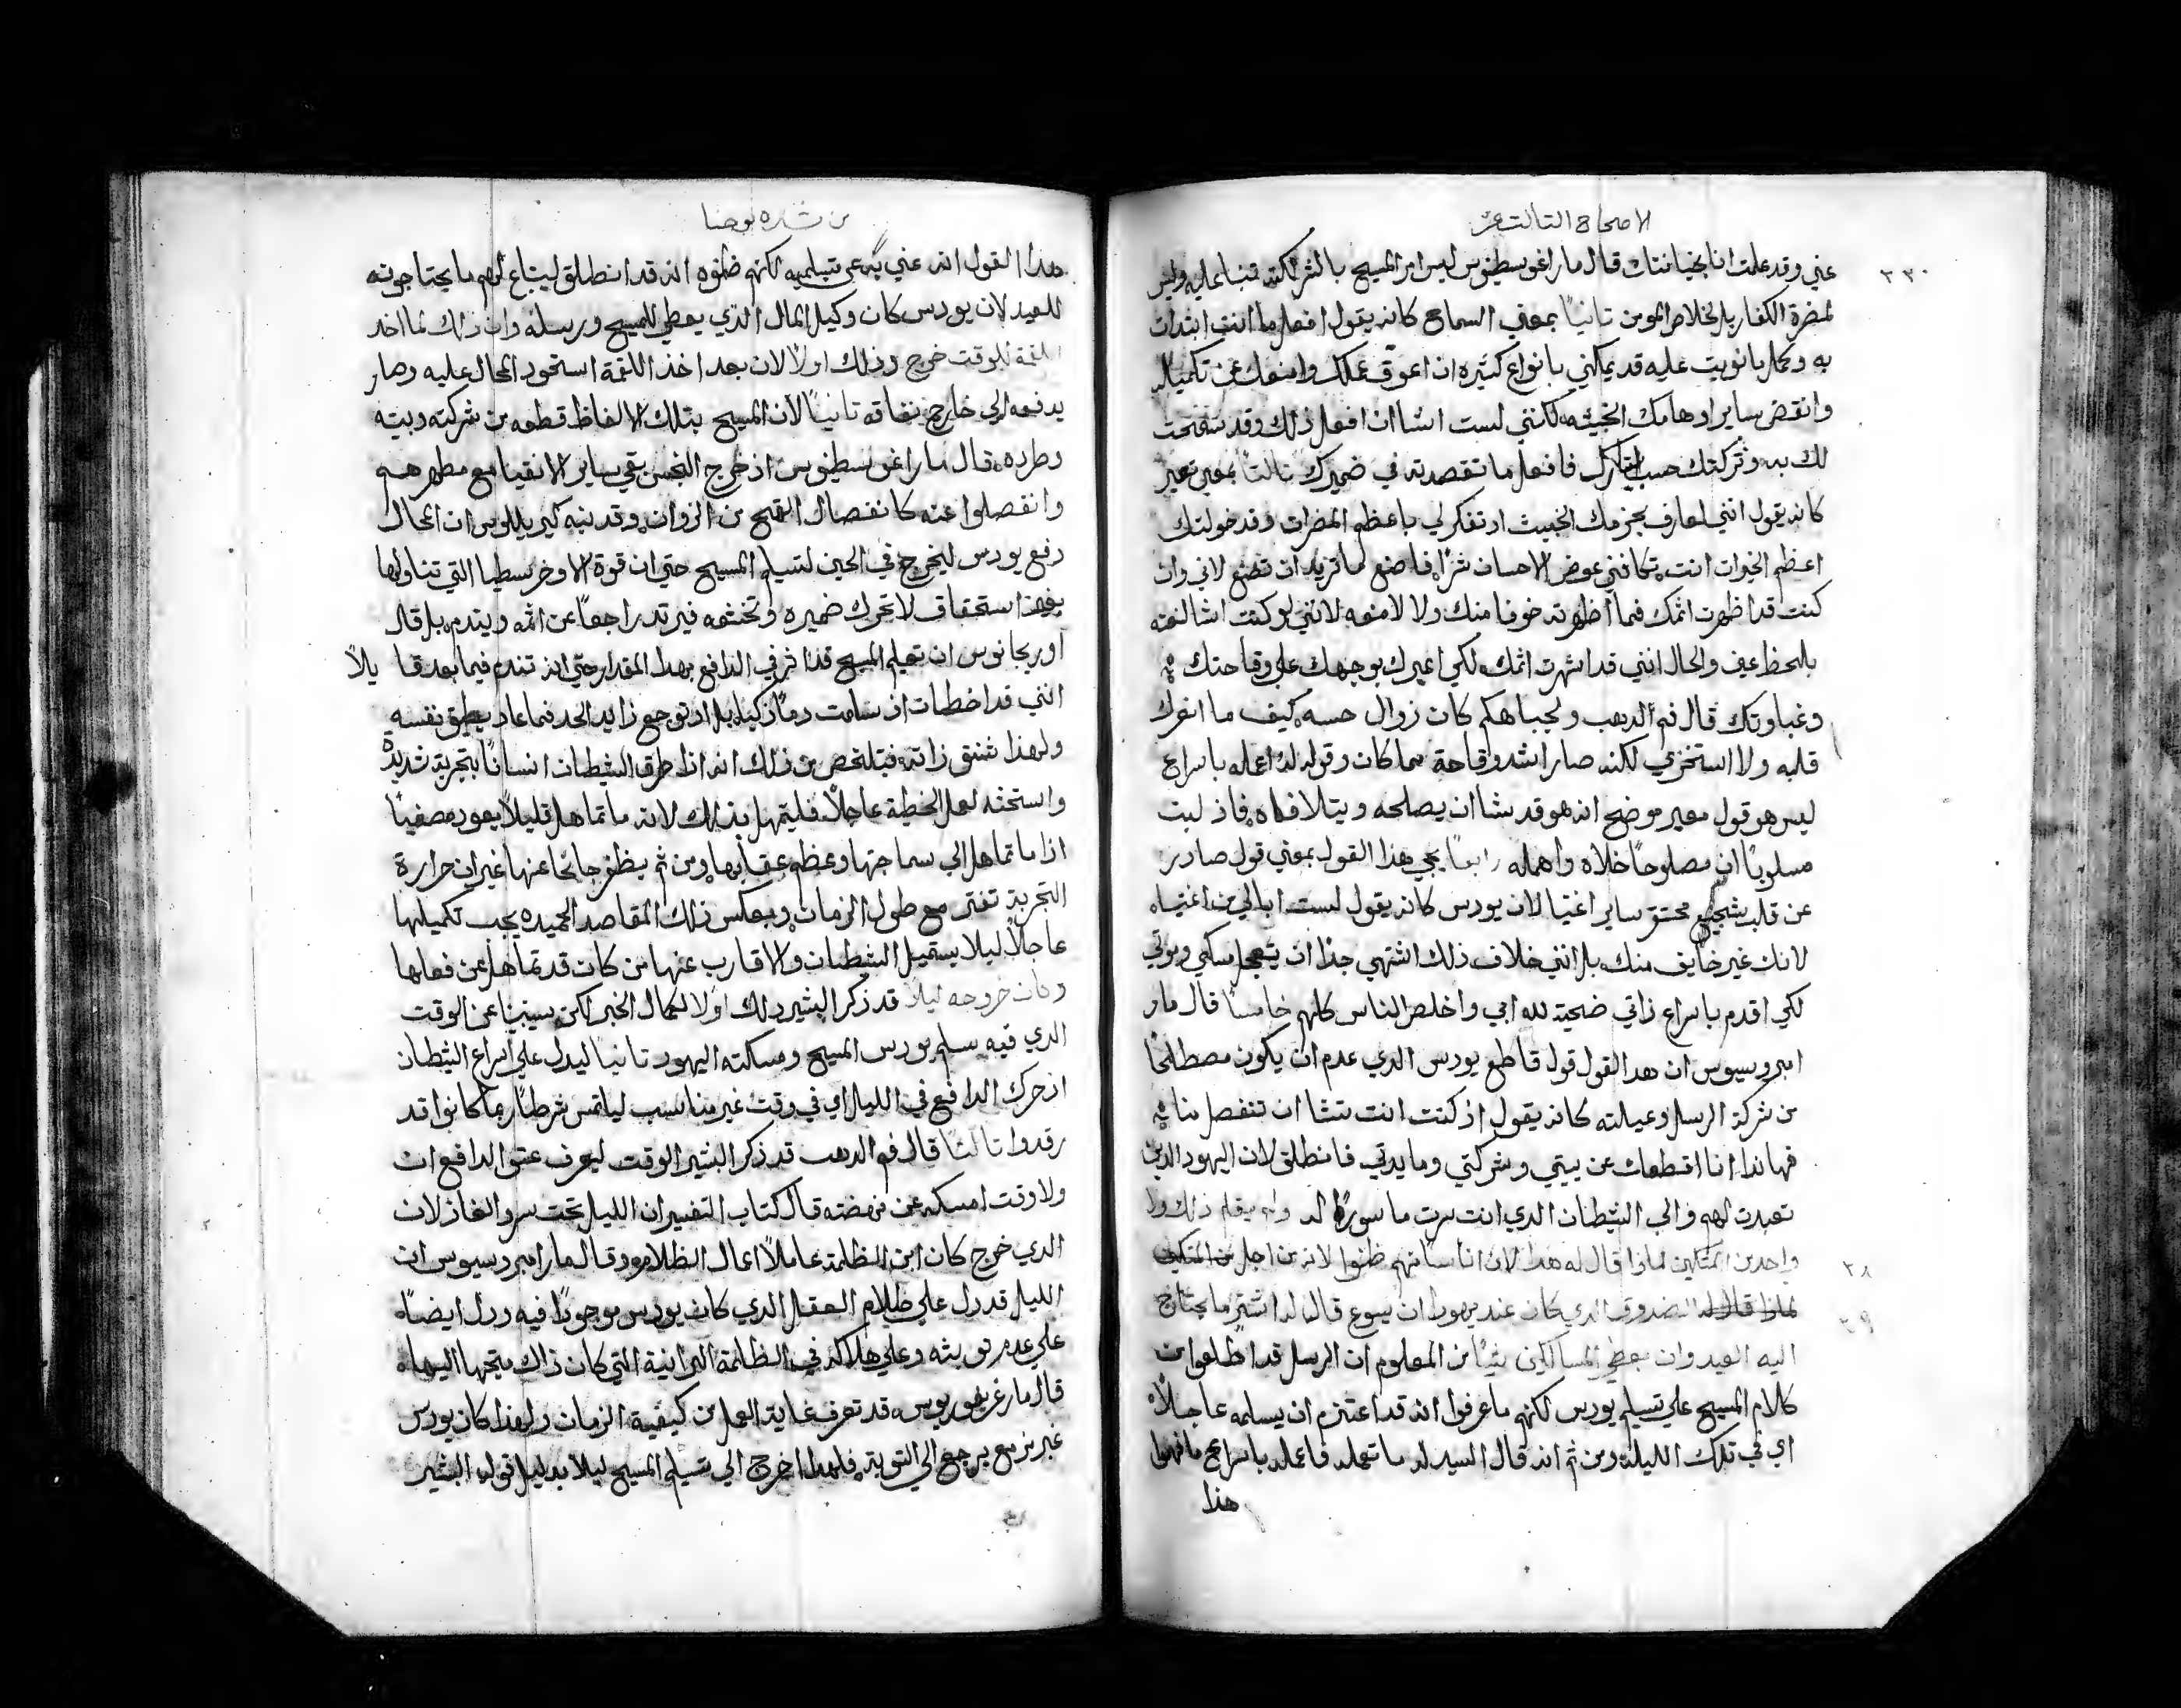 الاصحاح التالت عشر
٣٣٠
عني وقد علمت انا بخيانتك قال مار اغوسطينوس ليس امر المسيح بالشر لكنه تنبا عليه وليس
لمضرة الكفار بل لخلاص المومن تانياً بمعني السماح كانه يقول افعل ما انت ابتدات
به وكمل ما نويت عليه قد يمكني بانواع كثيره ان اعوق عملك وامنعك عن تكميله
وانقض ساير اوهامك الخبيثه لكنني لست اشا ان افعل ذلك وقد سمحت
لك به وتركتك حسب فافعل ما تقصدته في ضميرك تالتاً بمعني تعير
كانه يقول انني لعارف بجزمك الخبيث اذ تفكر لي باعظم المضرات وقد خولتك
اعظم الخيرات انت تكافني عوض الاحسان شراً فاصنع ما تريد ان تصنع لاني وان
كنت قد اظهرت اثمك فما اظهرته خوفا منك ولا لامنعه لانني لو كنت اشا لنعته
بلحظ عين والحال انني قد اشهرت اثمك لكي اعيرك بوجهك علي وقاحتك
وغباوتك قال فم الدهب ولجباهكم كان زوال حسه كيف ما انفرك
قلبه ولا استخزي لكنه صار اشد وقاحة مما كان وقوله له اعمله باسراع
ليس هو قول معير موضح انه هو قد شا ان يصلحه ويتلافاه فاذ لبت
مسلوباً ان مصلوحاً خلاه واهمله رابعاً يجي هذا القول بمعني قول صادر
عن قلب شجيع محتقر ساير اغتيالات يودس كانه يقول لست ابالي من اغتياله
لانك غير خايف منك بل انني خلاف ذلك اشتهي جدا ان يتعجل مسكي وموتي
لكي اقدم باسراع ذاتي ضحية لله ابي واخلص الناس كلهم خامساً قال مار
امبروسيوس ان هدا القول قول قاطع يودس الدي عدم ان يكون مصطلحاً
من شركة الرسل وعيلته كانه يقول اذ كنت انت تشا ان تنفصل منا
فهاندا انا اقطعك عن بيتي وشركتي ومايدتي فانطلق لان اليهود الدين
تعبدت لهم والي الشيطان الدي انت صرت ماسوراً له ولم يعلم ذلك ولا
٢٨
واحد من المتكين لماذا قال له هدا لان اناساً منهم ظنوا لانه من اجل
٢٩
الصندوق الدي كان عند يهودا ان يسوع قال له اشتر ما يحتاج
اليه العيد وان يعطي المساكين شياً من المعلوم ان الرسل قد اطلعوا من
كلام المسيح علي تسليم يودس لكنهم ما عرفوا انه قد اعتزم ان يسلمه عاجلاً
اي في تلك الليلة ومن ثم انه قال السيد له ما تعمله فاعمله باسراع ما فهموا
هذا
من بشاره يوحنا
هدا القول انه عني به عن تسليمه لكنهم ظنوه انه قد انطلق ليبتاع لهم ما يحتاجونه
للعيد لان يودس كان وكيل المال الذي يعطي للمسيح ورسله وان ذلك لما اخد
اللقمة للوقت خرج وذلك اولاً لان بعد اخذ اللقمة استحود المحال عليه وصار
يدفعه الي خارج نفاقه تانياً لان المسيح بتلك الالفاظ قطعه من شركته وبيته
وطرده قال مار اغوسطينوس اذ خرج النجس بقي ساير الانقيا مع مطهرهم
وانفصلوا عنه كانفصال القمح من الزوان وقد نبه كيريللوس ان المحال
دفع يودس ليخرج في الحين لتسليم المسيح حتي ان قوة الاوخرسطيا التي تناولها
بغير استحقاق لا تحرك ضميره وتخشعه فيرتد راجعاً عن اثمه ويتدم بل قال
اوريجانوس ان تعليم المسيح قد اثر في الدافع بهدا المقدار حتي انه تندم فيما بعد قايلاً
انني قد اخطات اذ سلمت دماً زكياً بل اد توجع زايد الحد فما عاد يطيق نفسه
ولهذا شنق ذاته فيتلخص من ذلك انه اذا طرق الشيطان انساناً بتجربة شديدة
واستحثه لعمل الخطية عاجلاً فليتمهل بذلك لانه ما تماهل قليلاً يعود مصغياً
اذا ما تماهل الي سماجتها وعظم عقابها ومن ثم يظفر جانحاً عنها غير ان حرارة
التجربة تفتر مع طول الزمان وبعكس ذلك المقاصد الحميده يجب تكميلها
عاجلاً ليلا يستميل الشيطان والاقارب عنها من كان قد تماهل عن فعلها
وكان خروجه ليلاً قد ذكر البشير دلك اولاً لكمال الخبر لكن يبينا عن الوقت
الدي فيه سلم يودس المسيح ومسكته اليهود تانياً ليدل علي اسراع الشيطان
اذ حرك الدافع في الليل اي في وقت غير مناسب ليلتمس شرطاً ربما كانوا قد
رقدوا تالتاً قال فم الدهب قد ذكر البشير الوقت ليعرف عتو الدافع ان
ولا وقت امسكه عن نهضته قال كتاب التفسير ان الليل تحت سر والغاز لان
الدي خرج كان ابن الظلمة عاملاً اعمال الظلام وقال مار امبروسيوس ان
الليل قد دل علي ظلام العقل الدي كان يودس موجوداً فيه ودل ايضاً
علي عدم توبته وعلي هلاكه في الظلمة البرانية التي كان ذلك يتجها اليها
قال مار غريغوريوس قد تعرف غاية العمل من كيفية الزمان ولهذا كان يودس
غير مزمع يرجع الي التوبة فلهدا خرج الي تسليم المسيح ليلاً بدليل قول البشير